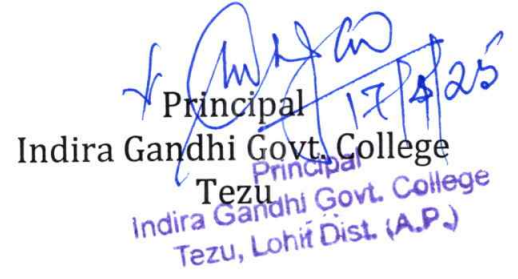 17/4/25
Principal
Indira Gandhi Govt. College
Tezu
Principal
Indira Gandhi Govt. College
Tezu, Lohit Dist. (A.P.)